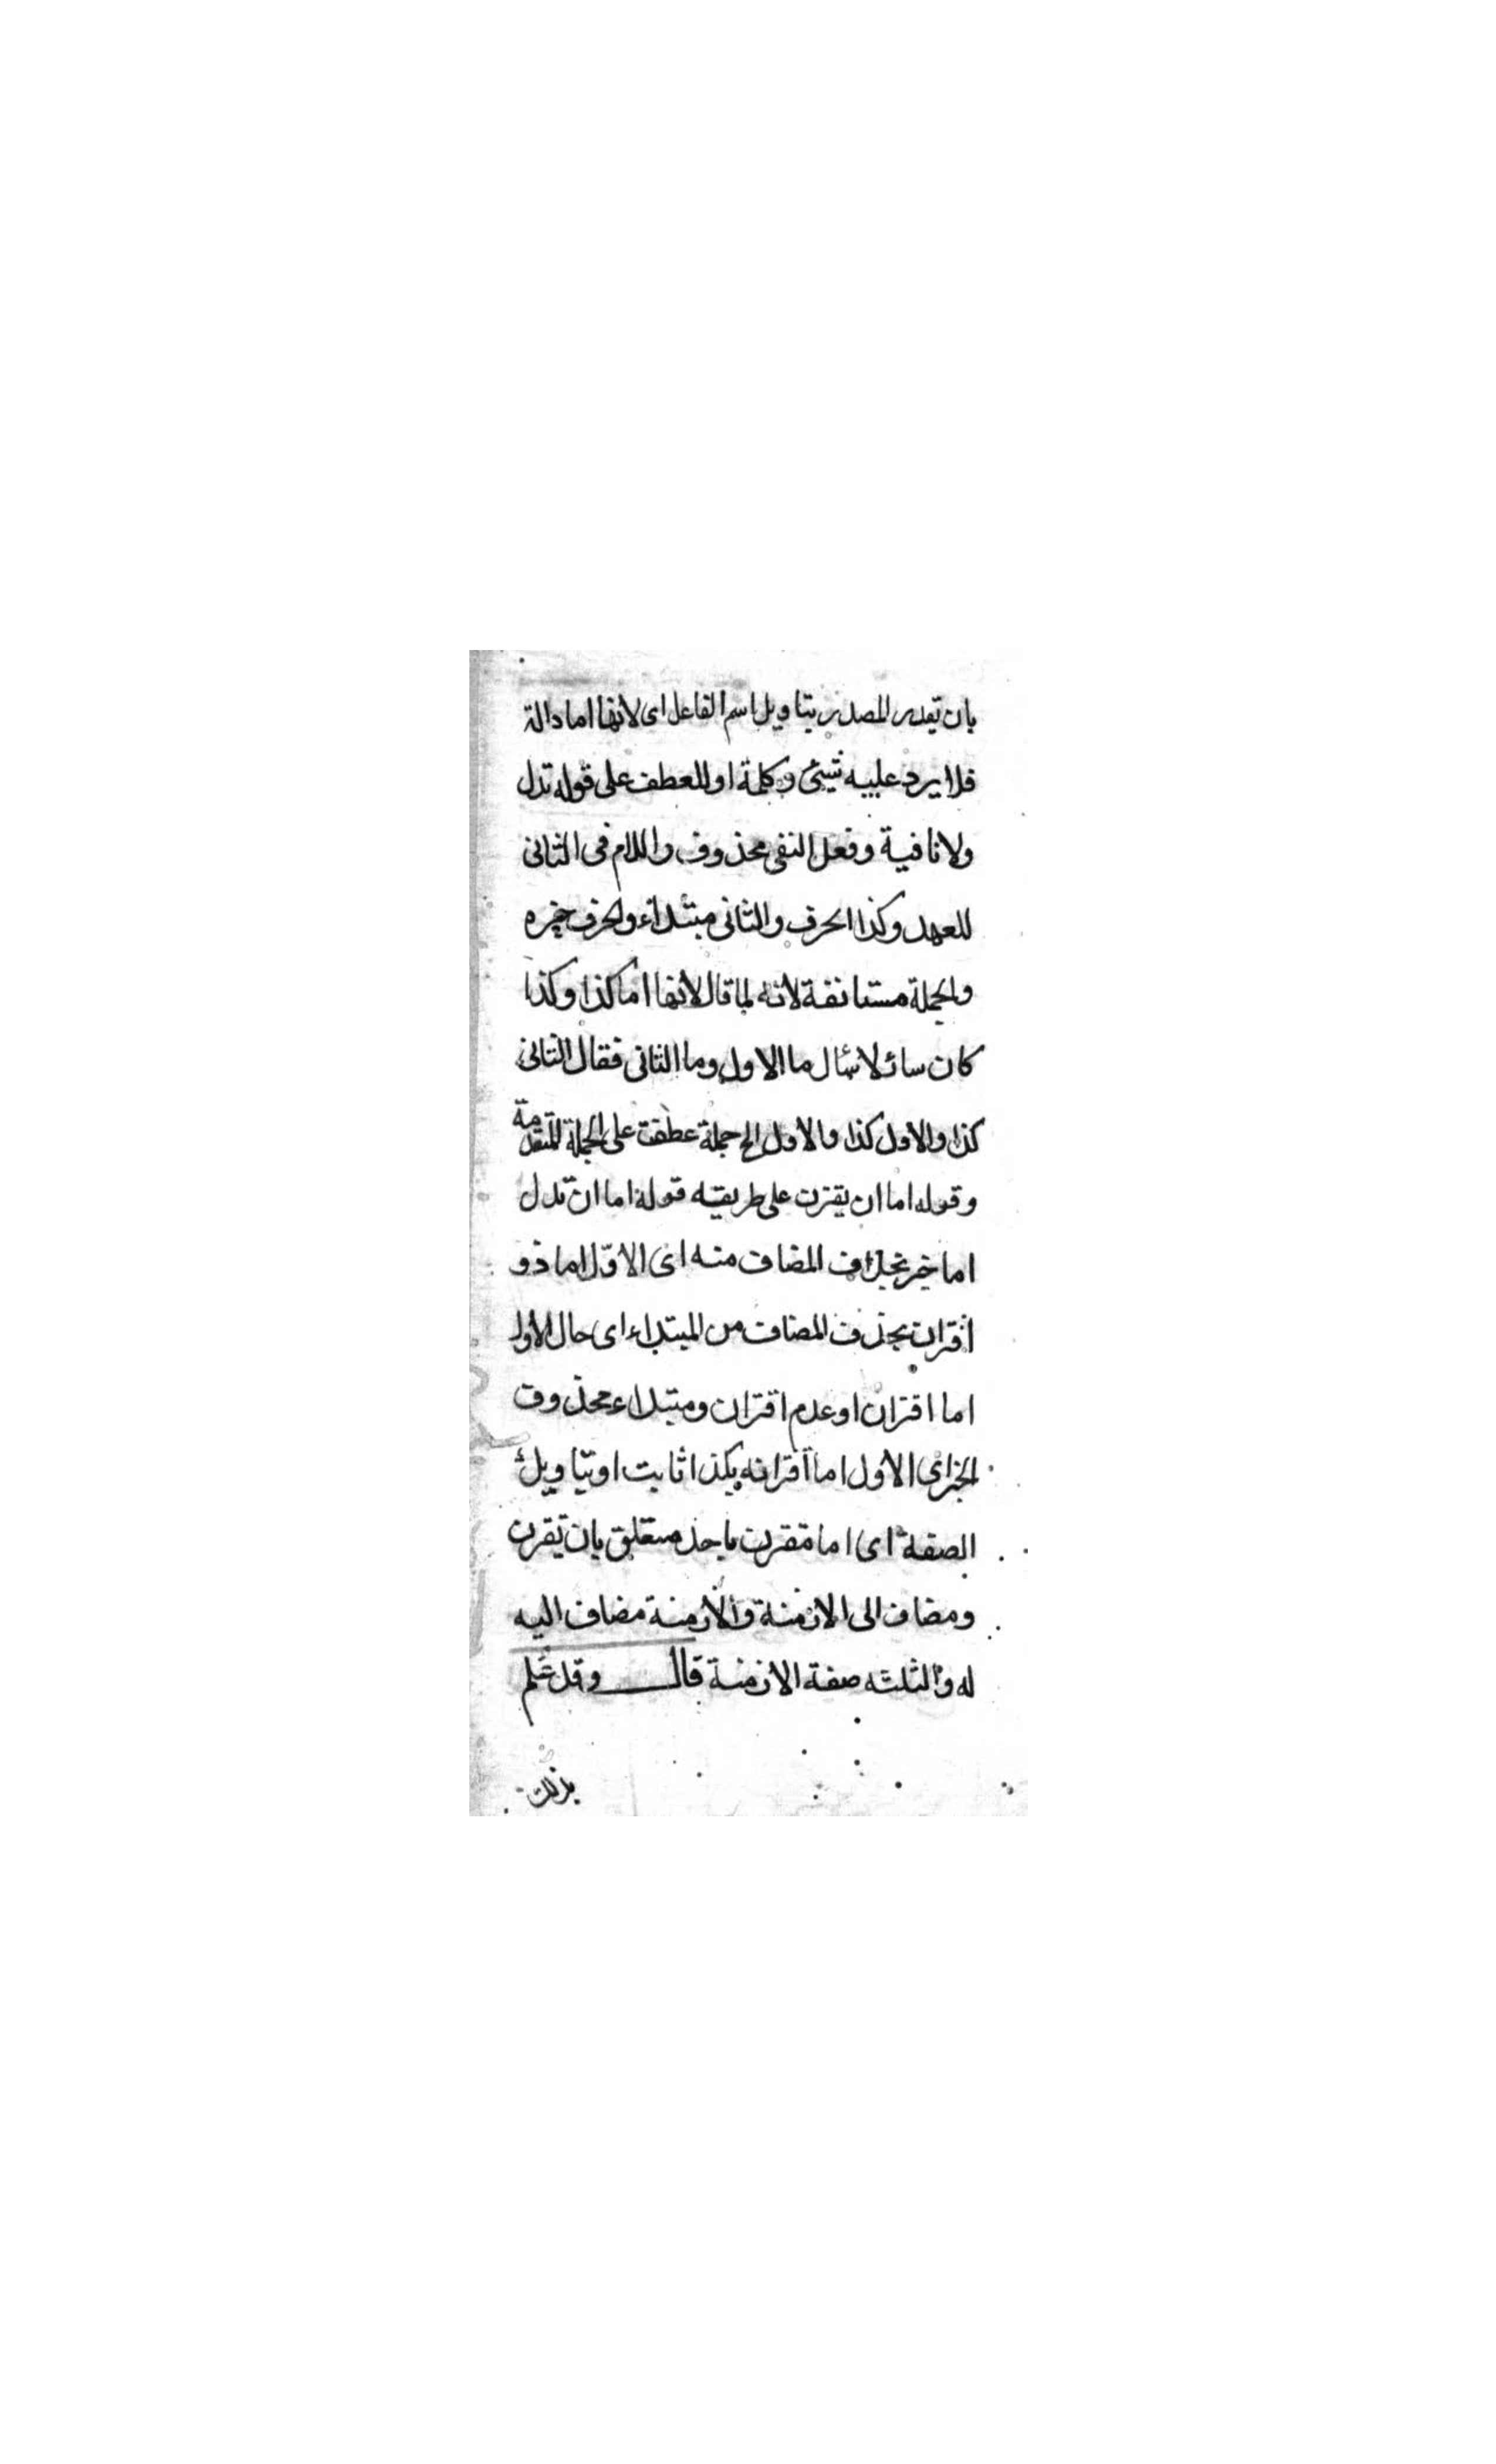 بان تقدر المصدر بتاويل اسم الفاعل اى لانها اما دالة
فلا يرد عليه شيئ وكلمة او للعطف على قوله تدل
ولا نافية وفعل النفى محذوف واللام فى الثانى
للعهد وكذا الحرف والثانى مبتداء والحرف خبره
والجملة مستانفة لانه لما قال لانها اما كذا وكذا
كان سائلا سٔال ما الاول وما الثانى فقال الثانى
كذا والاول كذا والاول الخ جملة عطفت على الجملة المتقدمة
وقوله اما ان يقترن على طريقه قوله اما ان تدل
اما خبر بحذف المضاف منه اى الاوّل اما ذو
اقتران بحذف المضاف من المبتداء اى حال الاول
اما اقتران او عدم اقتران ومبتداء محذوف
الخبر اى الاول اما اقترانه بكذا ثابت او بتاويل
الصفة اى اما مقترن باحد متعلق بان تقترن
ومضاف الى الازمنة والازمنة مضاف اليه
له والثلثه صفة الازمنة قال وقد علم
بذلك